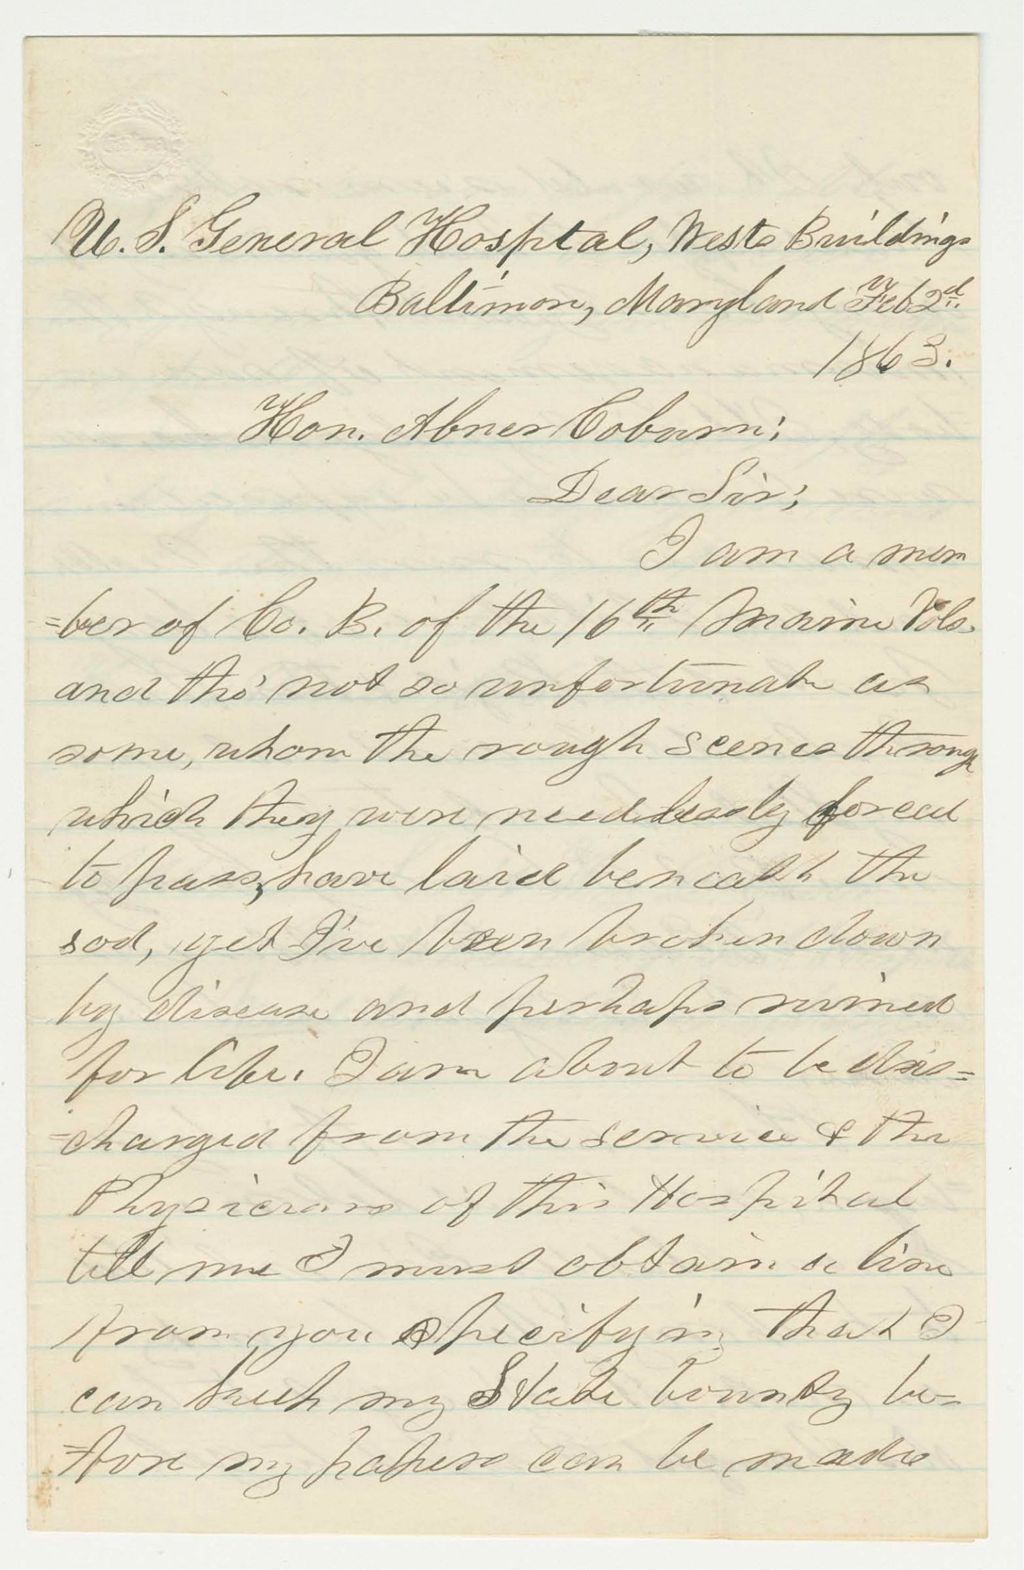 U. S. General Hospital, Wests Buildings
Baltimore, Maryland Feb 2d
1863.
Hon. Abner Coburn;
Dear Sir;
I am a mem
=ber of Co. B. of the 16th Maine Vols.
and tho' not so unfortunate as
some, whom the rough scenes through
which they were needlessly forced
to pass, have laid beneath the
sod, yet I've been broken down
by disease and perhaps ruined
for life. I am about to be dis=
=charged from the service & the
Physicians of this Hospital
tell me I must obtain a line
from you specifying that I
can keep my State bounty be=
=fore my papers can be made